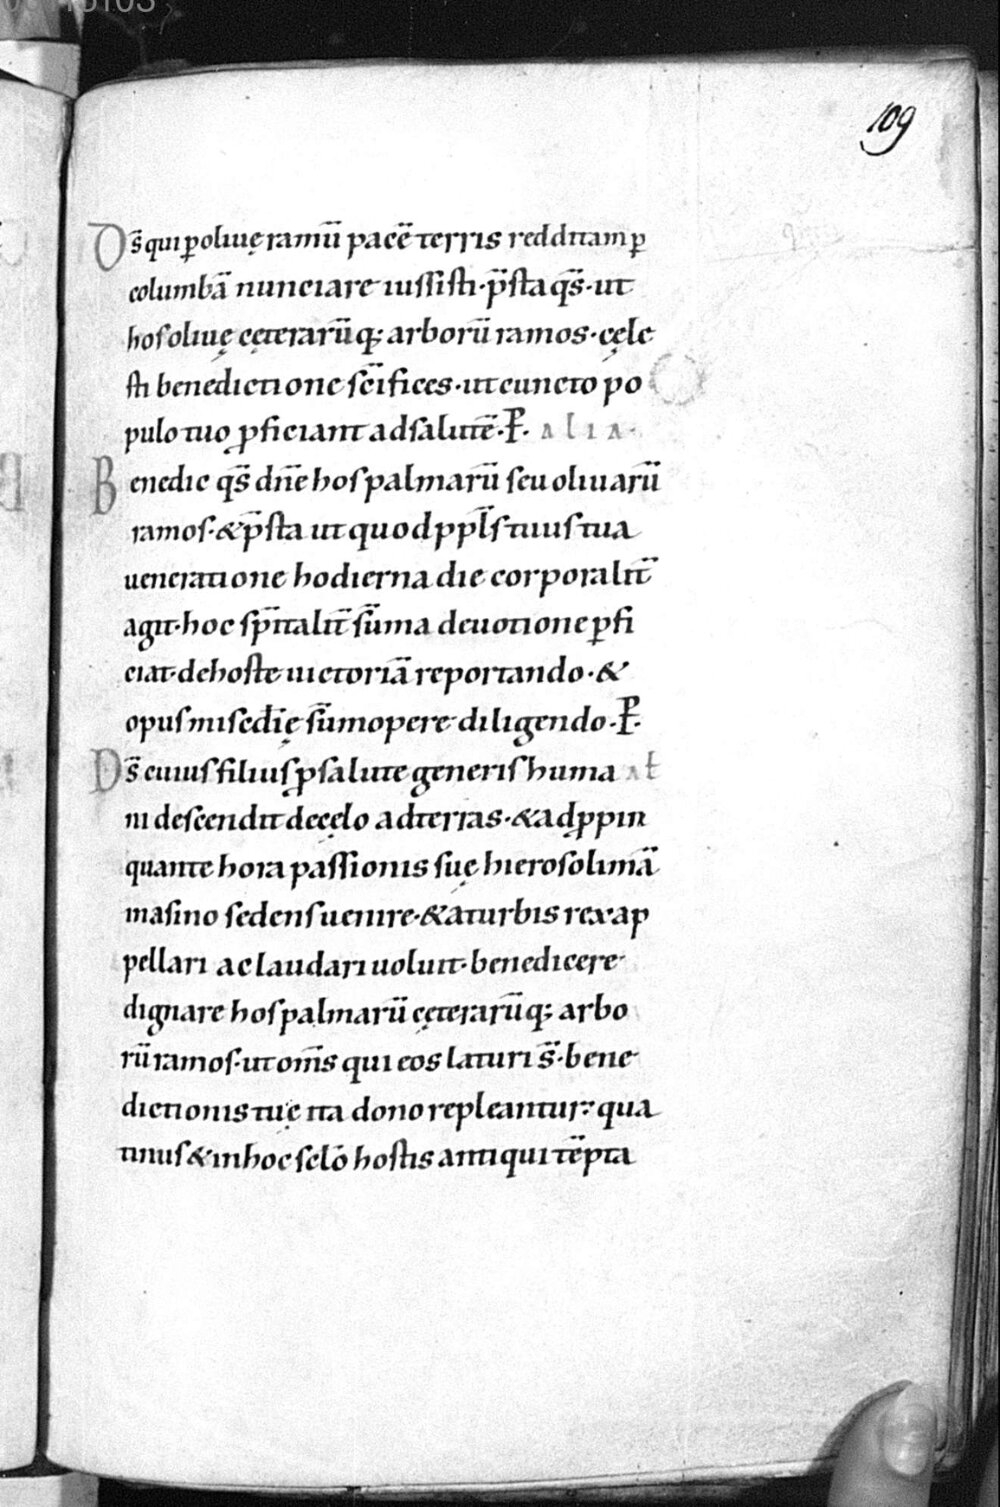 109
Ds̄ qui ꝑ oliuę ramū pacē terris redditam ꝑ
columbā nunciare iussisti· p̄sta qs̄· ut
hos oliuę cęterarūq; arborū ramos· cęle
sti benedictione sc̄ifices· ut cuncto po
pulo tuo ꝓficiant ad salutē· P̄· ALIA·
Benedic qs̄ dn̄e hos palmarū seu oliuarū
ramos· & p̄sta ut quod ppl̄s tuus tua
ueneratione hodierna die corporalit̄
agit· hoc sp̄italit̄ sūma deuotione ꝑfi
ciat· de hoste uictoriā reportando· &
opus miscd̄ię sūmopere diligendo· P̄·
Ds̄ cuius filius ꝓ salute generis huma Ał
ni descendit de cęlo ad terras· & adꝓpin
quante hora passionis suę hierosolimā
in asino sedens uenire· & a turbis rex ap
pellari ac laudari uoluit· benedicere
dignare hos palmarū cęterarūq; arbo
rū ramos· ut om̄s qui eos laturi s̄· bene
dictionis tuę ita dono repleantur· qua
tinus & in hoc sclō hostis antiqui tēpta